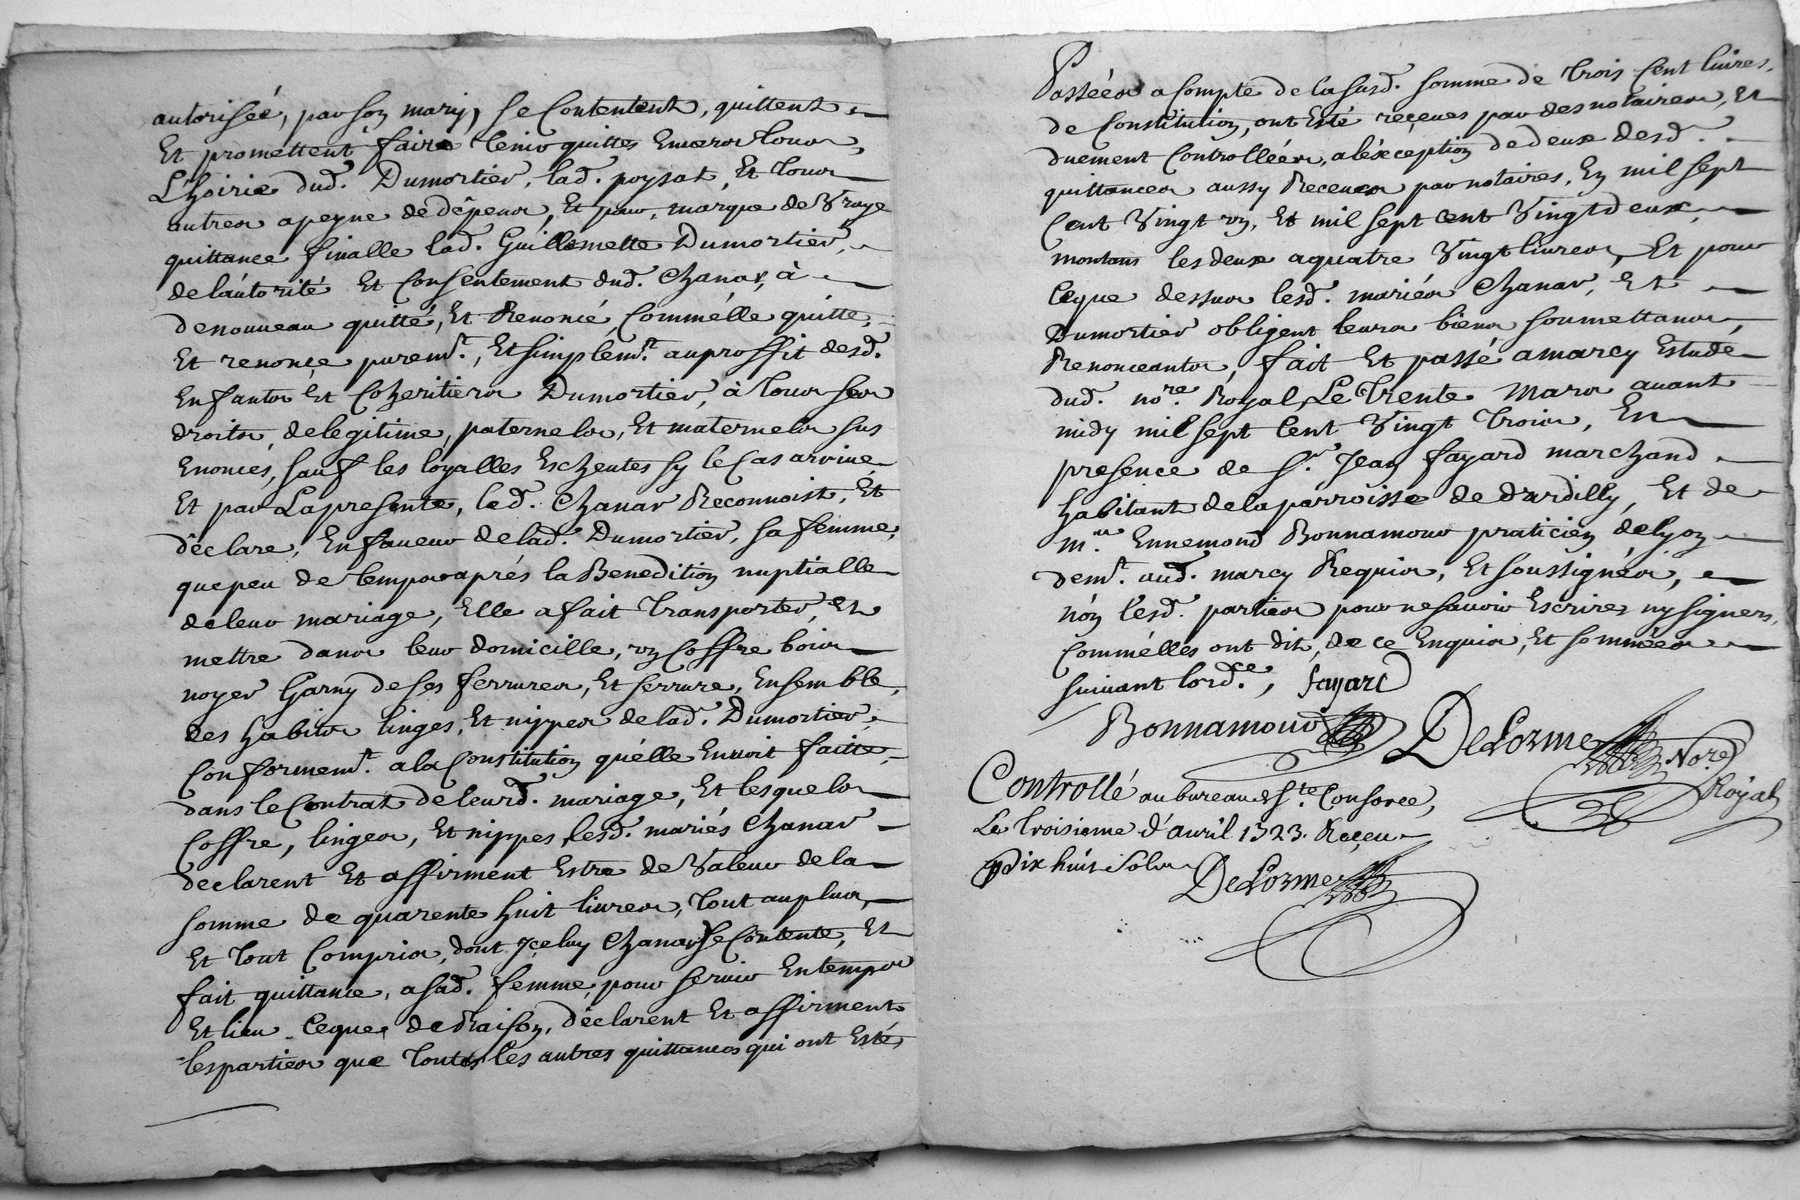 autorisée, par son mary, se Contentent, quittent
Et promettent faire tenir quittes Envers tous,
L'hoirie dud. Dumortier, lad. poysat, Et tous
autres apeyne de dépens, Et pour, marque de Vraye
quittance finalle lad. Guillemette Dumortier,
delautorité Et Consentement dud. Chanav, à
denouveau quitté, Et Renoncé, Comm'élle quitte,
Et renonçe puremt., Et simplemt. auproffit desd.
Enfants Et Coheritiers Dumortier, à tous ses
droits, delegitime, paternels, Et maternels sus
Enoncés, sauf les loyalles Escheutes sy le Cas arrive
Et par Lapresente, led. Chanav Reconnoist, Et
déclare, En faveur de lad. Dumortier, sa femme,
que peu de temps aprés la Benedition nuptialle
deleur mariage, Elle a fait transporter, Et
mettre dans leur domicille, vn Coffre bois
noyer Garny de ses ferrures, Et serrure, Ensemble,
des habits linges, Et nippes de lad. Dumortier,
Conformemt. ala Constitution qu'élle Enavoit faitte,
dans le Contrat de leurd. mariage, Et lesquels
Coffre, linges, Et nippes, lesd. mariés Chanav
declarent Et affirment Estre de Valeur de la
somme de quarente huit livres, tout auplus,
Et tout Compris, dont Jceluy Chanav se Contente, Et
fait quittance, asad. femme, pour servir Entemps
Et lieu Ceque de Raison, déclarent Et affirment
lesparties que toutes les autres quittances qui ont Esté
Passées a Compte de la susd. somme de trois Cent livres,
de Constitution, ont Esté reçeues par des notaires, Et
duement Controllées, aléxception de deux desd.
quittances aussy Receues par notaires, En mil sept
Cent Vingt vn, Et mil sept Cent Vingt deux,
montans les deux aquatre Vingt livres, Et pour
Ceque dessus lesd. mariés Chanav, Et
Dumortier obligent leurs biens soumettans,
Renonceants, fait Et passé amarcy Estude
dud. nore. Royal, Le Trente Mars avant
midy mil sept Cent Vingt trois, En
presence de Sr. Jean fayard marchand
habitant delaparroisse de dardilly, Et de
Me. Ennemond Bonnamour praticien delyon
demt. aud. marcy Requis, Et soussignés,
nón lesd. parties pour nesavoir Escrires ny signers,
Comm'élles ont dit, de ce Enquis, Et sommées
suivant lordce., fayard
Bonnamour DeLorme Nore.
Royal
Controllé aubureau de Ste. Consorce,
Le troisieme d'avril 1723. Reçeu
dix huit sols DeLorme